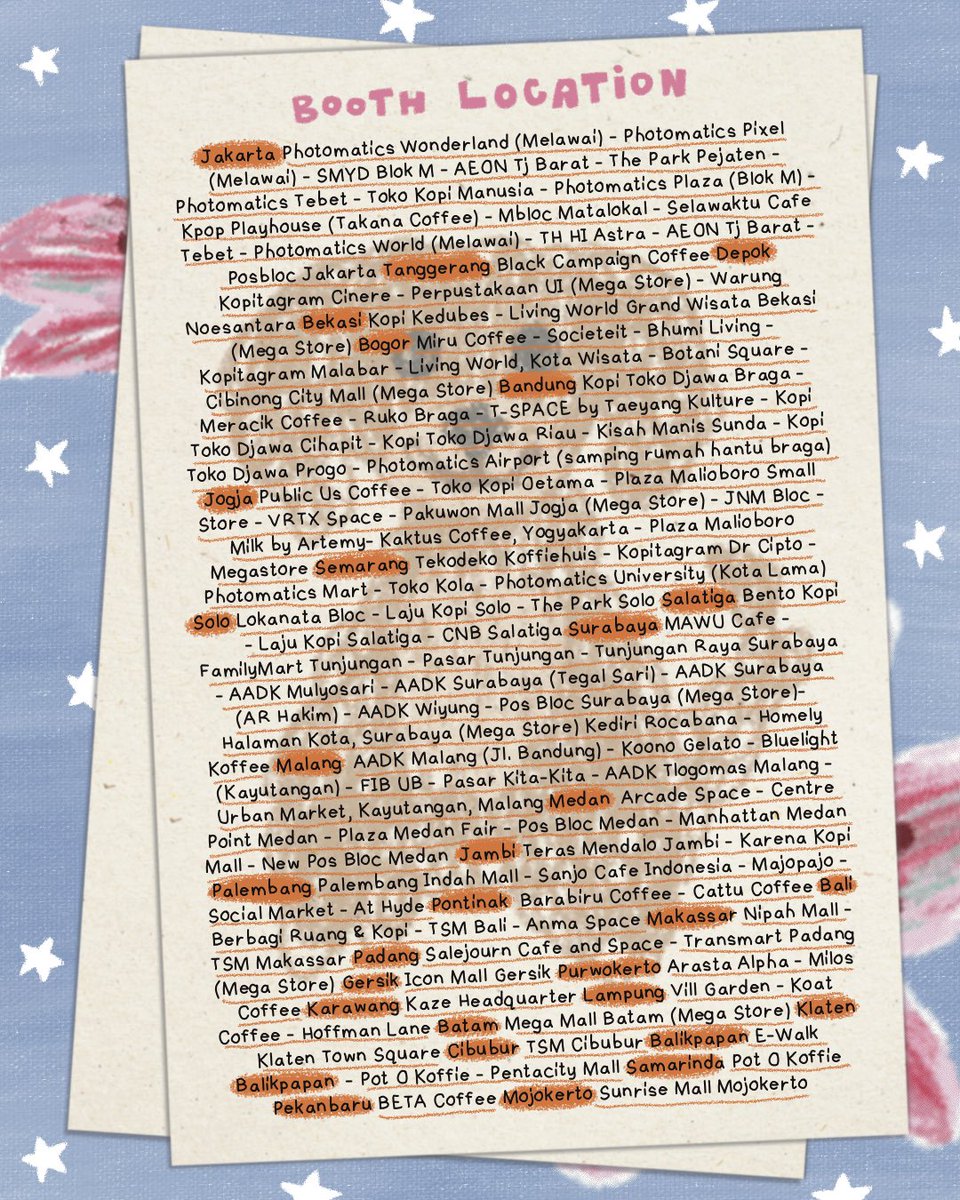 BOOTH LOCATION
Jakarta Photomatics Wonderland (Melawai) - Photomatics Pixel
(Melawai) - SMYD Blok M - AEON Tj Barat - The Park Pejaten -
Photomatics Tebet - Toko Kopi Manusia - Photomatics Plaza (Blok M) -
Kpop Playhouse (Takana Coffee) - Mbloc Matalokal - Selawaktu Cafe
Tebet - Photomatics World (Melawai) - TH HI Astra - AEON Tj Barat -
Posbloc Jakarta Tanggerang Black Campaign Coffee Depok
Kopitagram Cinere - Perpustakaan UI (Mega Store) - Warung
Noesantara Bekasi Kopi Kedubes - Living World Grand Wisata Bekasi
(Mega Store) Bogor Miru Coffee - Societeit - Bhumi Living -
Kopitagram Malabar - Living World, Kota Wisata - Botani Square -
Cibinong City Mall (Mega Store) Bandung Kopi Toko Djawa Braga -
Meracik Coffee - Ruko Braga - T-SPACE by Taeyang Kulture - Kopi
Toko Djawa Cihapit - Kopi Toko Djawa Riau - Kisah Manis Sunda - Kopi
Toko Djawa Progo - Photomatics Airport (samping rumah hantu braga)
Jogja Public Us Coffee - Toko Kopi Oetama - Plaza Malioboro Small
Store - VRTX Space - Pakuwon Mall Jogja (Mega Store) - JNM Bloc -
Milk by Artemy- Kaktus Coffee, Yogyakarta - Plaza Malioboro
Megastore Semarang Tekodeko Koffiehuis - Kopitagram Dr Cipto -
Photomatics Mart - Toko Kola - Photomatics University (Kota Lama)
Solo Lokanata Bloc - Laju Kopi Solo - The Park Solo Salatiga Bento Kopi
- Laju Kopi Salatiga - CNB Salatiga Surabaya MAWU Cafe -
FamilyMart Tunjungan - Pasar Tunjungan - Tunjungan Raya Surabaya
- AADK Mulyosari - AADK Surabaya (Tegal Sari) - AADK Surabaya
(AR Hakim) - AADK Wiyung - Pos Bloc Surabaya (Mega Store)-
Halaman Kota, Surabaya (Mega Store) Kediri Rocabana - Homely
Koffee Malang AADK Malang (Jl. Bandung) - Koono Gelato - Bluelight
(Kayutangan) - FIB UB - Pasar Kita-Kita - AADK Tlogomas Malang -
Urban Market, Kayutangan, Malang Medan Arcade Space - Centre
Point Medan - Plaza Medan Fair - Pos Bloc Medan - Manhattan Medan
Mall - New Pos Bloc Medan Jambi Teras Mendalo Jambi - Karena Kopi
Palembang Palembang Indah Mall - Sanjo Cafe Indonesia - Majopajo -
Social Market - At Hyde Pontinak Barabiru Coffee - Cattu Coffee Bali
Berbagi Ruang & Kopi - TSM Bali - Anma Space Makassar Nipah Mall -
TSM Makassar Padang Salejourn Cafe and Space - Transmart Padang
(Mega Store) Gersik Icon Mall Gersik Purwokerto Arasta Alpha - Milos
Coffee Karawang Kaze Headquarter Lampung Vill Garden - Koat
Coffee - Hoffman Lane Batam Mega Mall Batam (Mega Store) Klaten
Klaten Town Square Cibubur TSM Cibubur Balikpapan E-Walk
Balikpapan - Pot O Koffie - Pentacity Mall Samarinda Pot O Koffie
Pekanbaru BETA Coffee Mojokerto Sunrise Mall Mojokerto